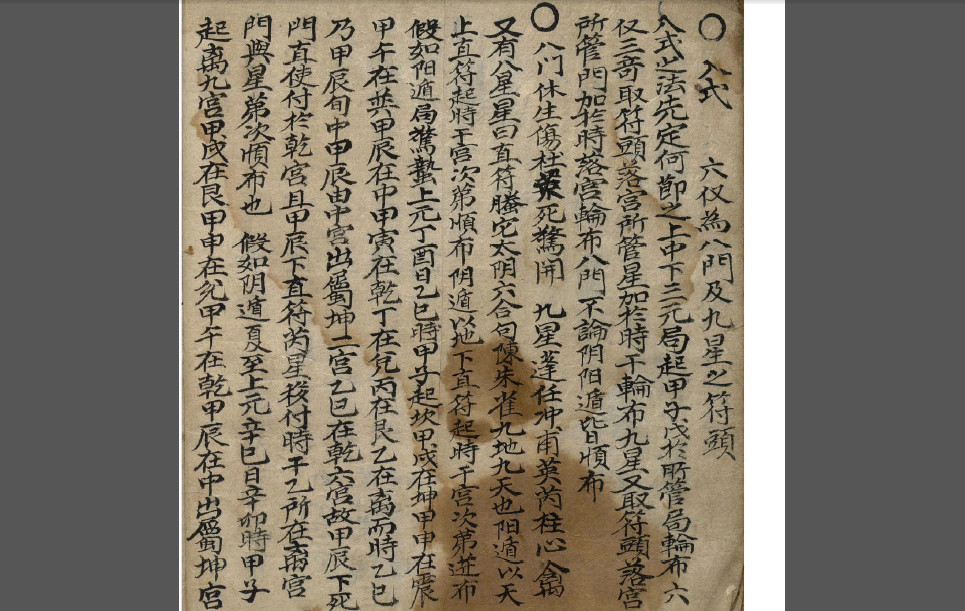 〇 入式 六仪為八門及九星之符頭
入式之法先定何節之上中下三元局起甲子戊於所管局輪布六
仪三奇取符頭落宫所管星加於時干輪布九星又取符頭落宫
所管門加於時落宫輪布八門不論阴阳遁皆順布
〇 八门休生傷杜景死驚開 九星蓬任冲甫英芮柱心禽
又有八星星曰直符螣它太阴六合句陳朱雀九地九天也阳遁以天
上直符起時干宫次第順布阴遁以地下直符起時干宫次第逆布
假如阳遁局驚蟄上元丁酉日乙巳時甲子起坎甲戌在坤甲申在震
甲午在巽甲辰在中甲寅在乾丁在兌丙在艮乙在离而時乙巳
乃甲辰旬中甲辰由中宫出寄坤二宫乙巳在乾六宫故甲辰下死
門直使付於乾宫且甲辰下直符芮星移付時干乙所在离宫
門與星第次順布也 假如阴遁夏至上元辛巳日辛卯時甲子
起离九宫甲戌在艮甲申在兌甲午在乾甲辰在中出寄坤宫